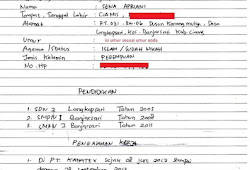 Nama : SENA APRIANI
Tempat, Tanggal Lahir : CIAMIS,
Alamat : RT. 031 RW. 06 Dusun
Langkapsari, Kec. Banjarsari Kab. Ciamis
Umur : isi umur sesuai umur anda
Agama / Status : ISLAM / SUDAH NIKAH
Jenis Kelamin : PEREMPUAN
NO. HP :
PENDIDIKAN
1. SDN 2 Langkapsari Tahun 2005
2. SMPN 1 Banjarsari Tahun 2008
3. SMAN 1 Banjarsari Tahun 2011
PENGALAMAN KERJA
1. Di PT. KAHATEX Sejak 02 Juni 2012 Sampai